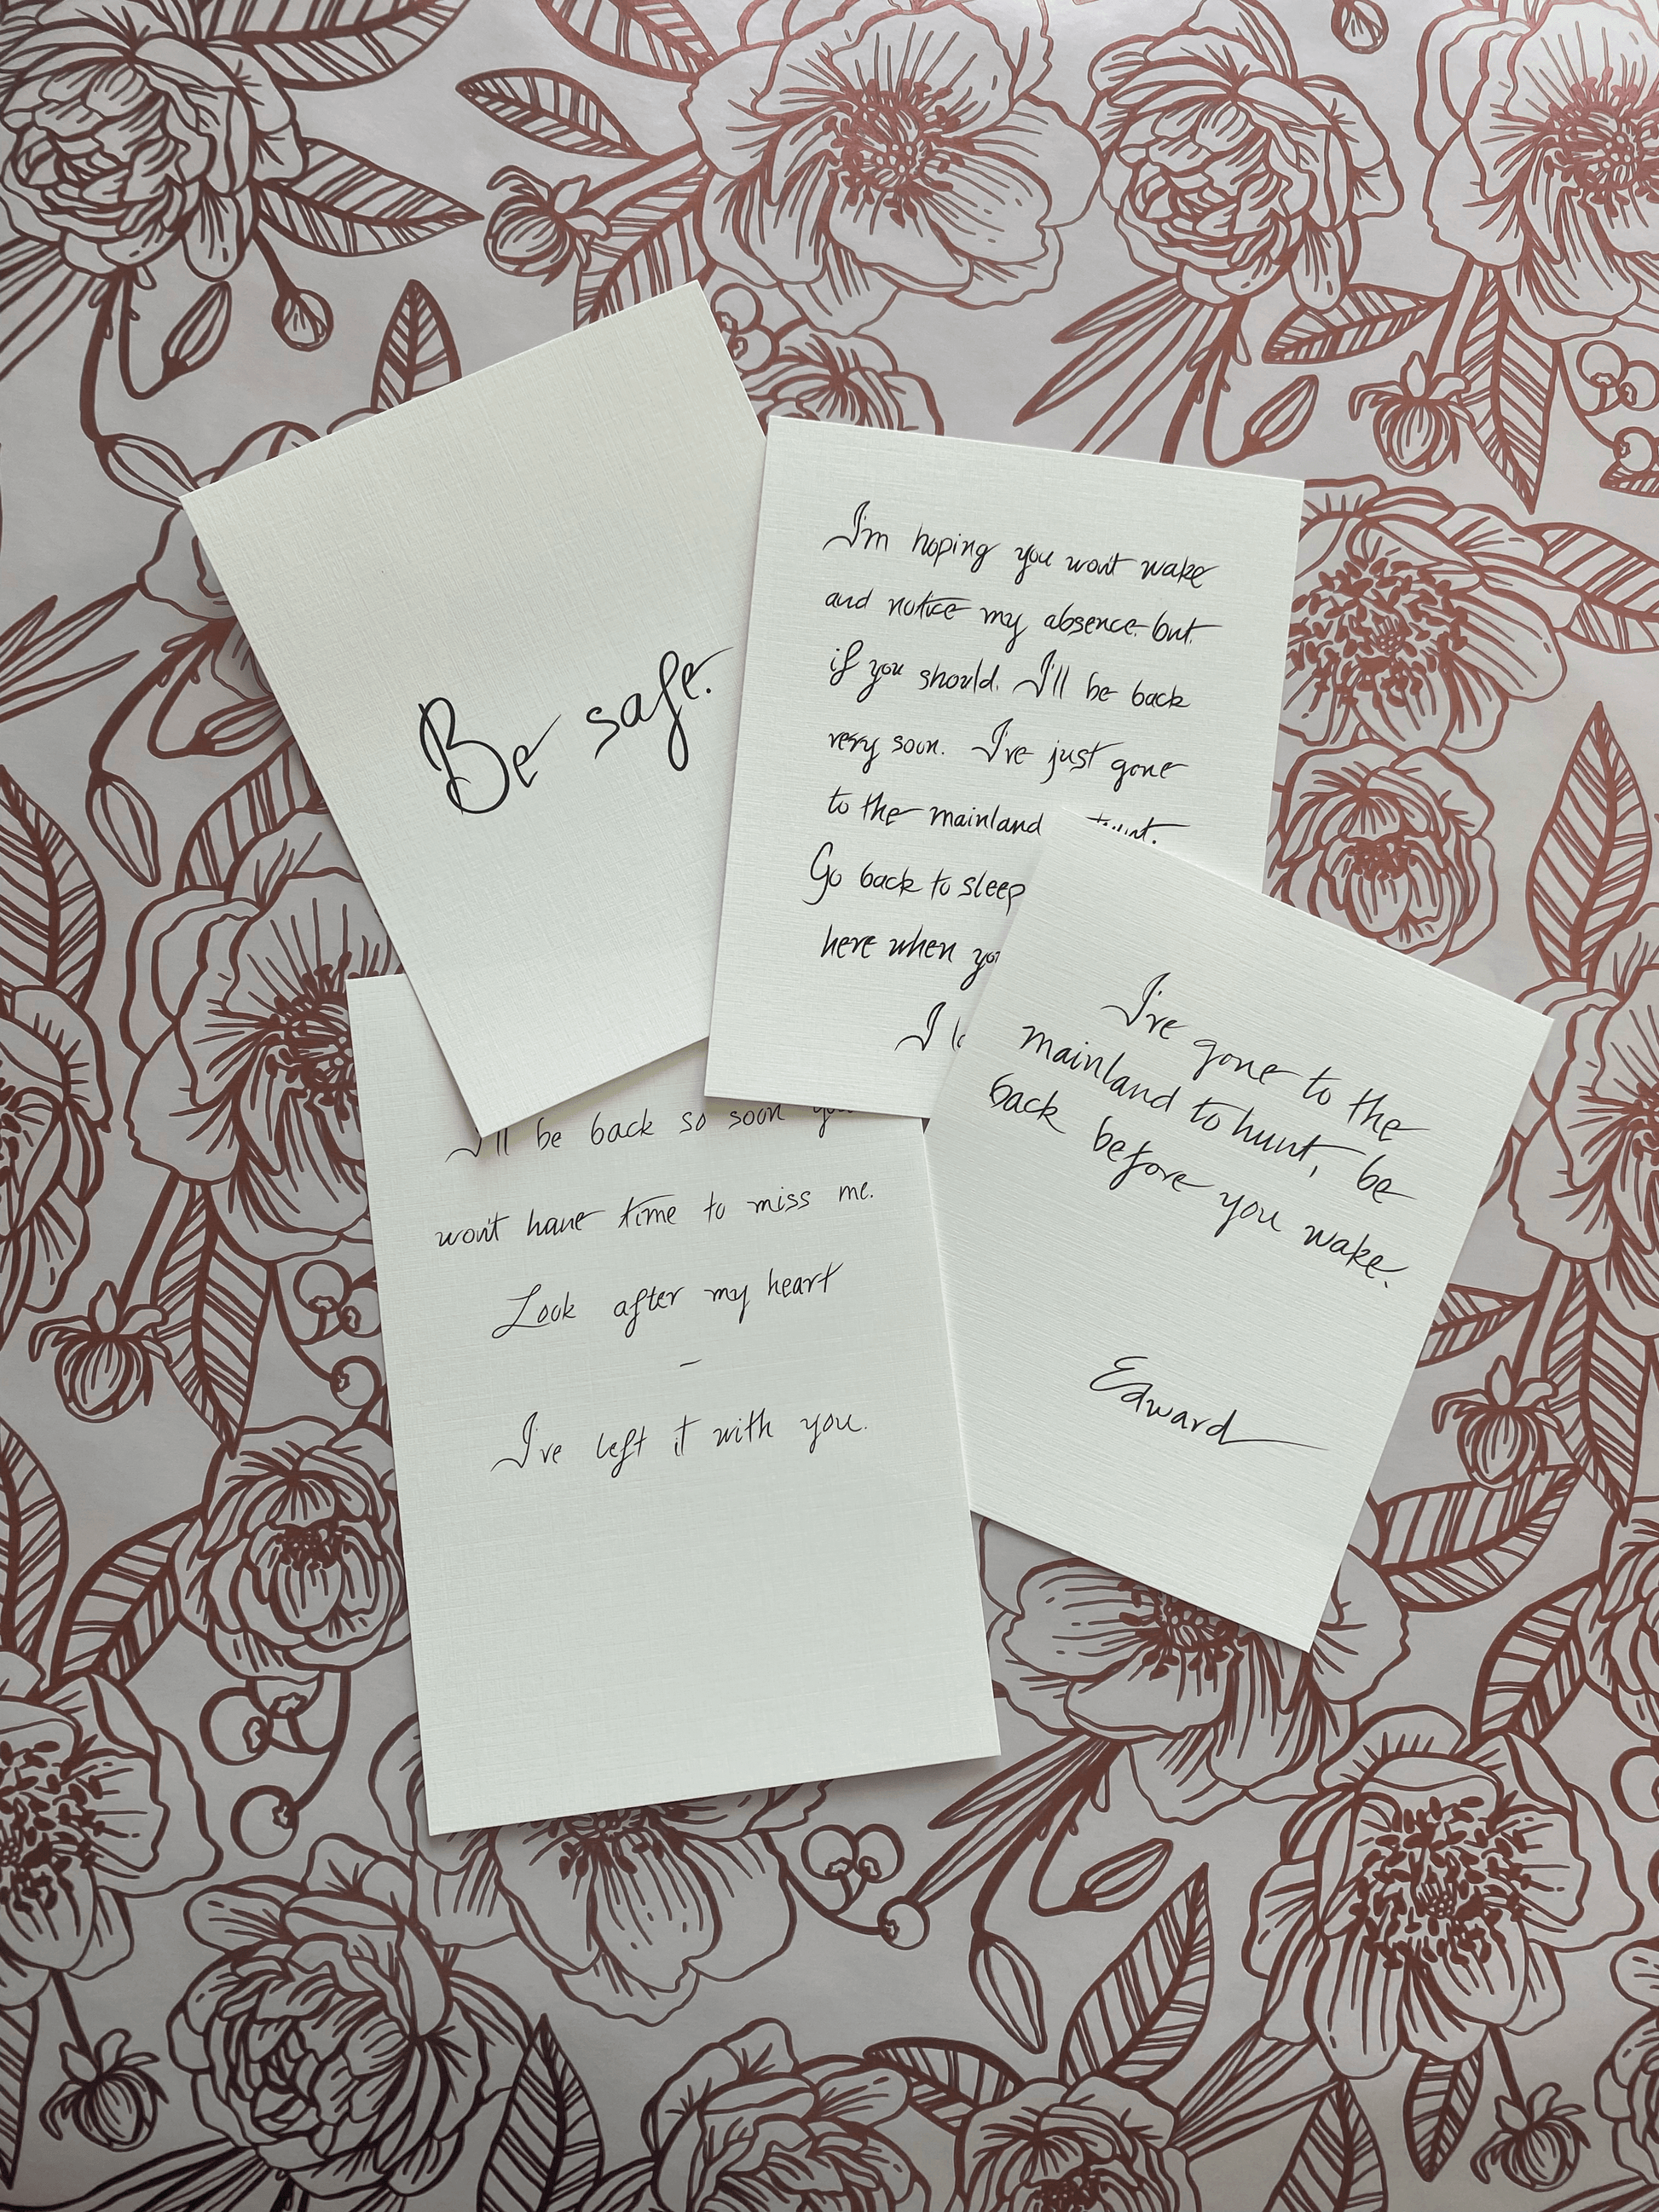 Be safe.
I'm hoping you won't wake
and notice my absence. but.
if you should. I'll be back
very soon. I've just gone
to the mainland
Go back to sleep
here when
I
I've gone to the
mainland to hunt, be
back before you wake.
Edward
I'll be back so soon
won't have time to miss me.
Look after my heart
–
I've left it with you.